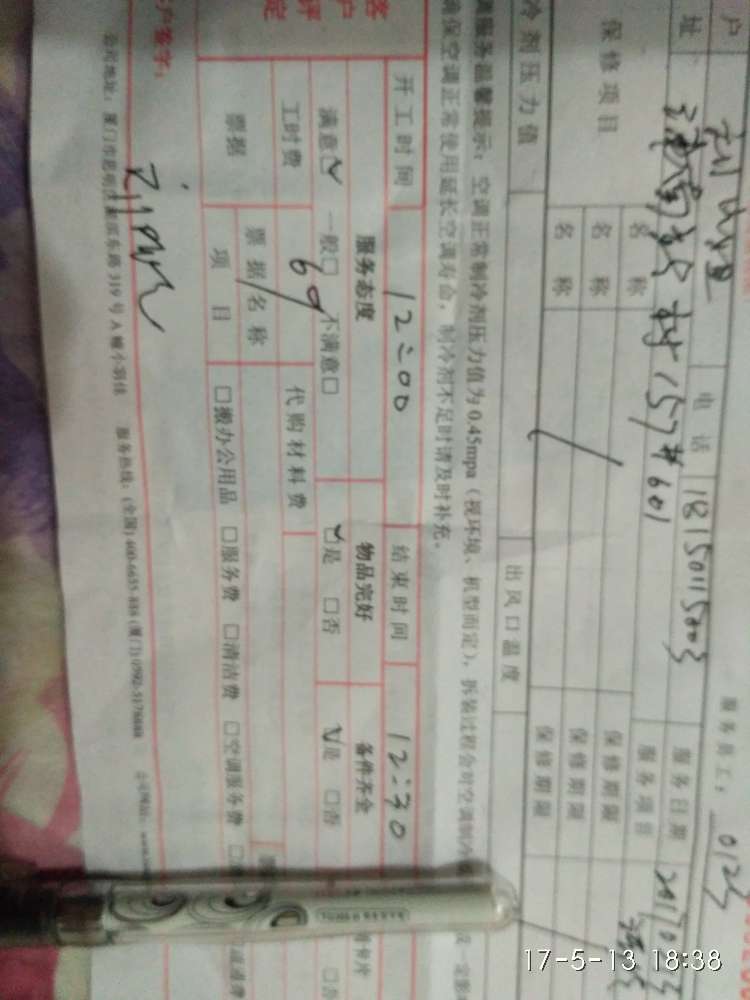 服务员工: 0123
户 电话 18150115003 服务日期
址 村157#601 服务项目
保修项目 名称 保修期限
名称 保修期限
名称 保修期限
冷剂压力值 出风口温度
调服务温馨提示: 空调正常制冷剂压力值为0.45mpa (视环境、机型而定), 拆装过程会对空调制冷
确保空调正常使用延长空调寿命, 制冷剂不足时请及时补充。
开工时间 12:00 结束时间 12:30
客户评定 服务态度 物品完好 备件齐全
满意☑ 一般□ 不满意□ ☑是 □否 ☑是 □否
工时费 60 代购材料费
票据 票据名称
项目 □搬办公用品 □服务费 □清洁费 □空调服务费
客户签字:
公司地址: 厦门市思明区湖滨东路319号A幢小羽佳 服务热线: (全国) 400-6655-888 (厦门) 0592-5178888
17-5-13 18:38